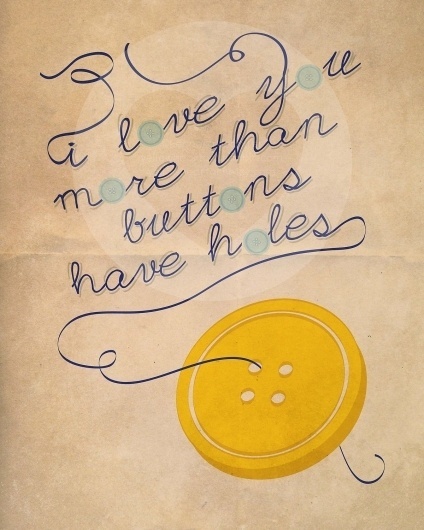 i love you
more than
buttons
have holes